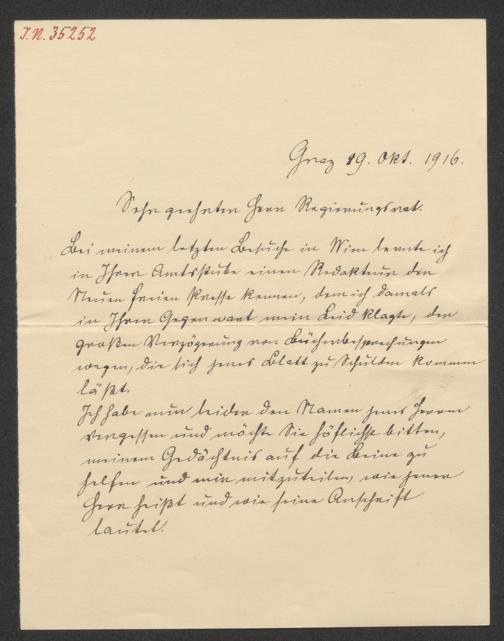 J.N. 35252
Graz 19. Okt. 1916.
Sehr geehrter Herr Regierungsrat.
Bei meinem letzten Besuche in Wien lernte ich
in Ihrer Amtsstube einen Redakteur der
Neuen freien Presse kennen, dem ich damals
in Ihrer Gegenwart mein Leid klagte, der
großen Verzögerung von Bücherbesprechungen
wegen, die sich jenes Blatt zu Schulden kommen
läßt.
Ich habe nun leider den Namen jenes Herrn
vergessen und möchte Sie höflichst bitten,
meinem Gedächtnis auf die Beine zu
helfen und mir mitzuteilen, wie jener
Herr heißt und wie seine Anschrift
lautet.